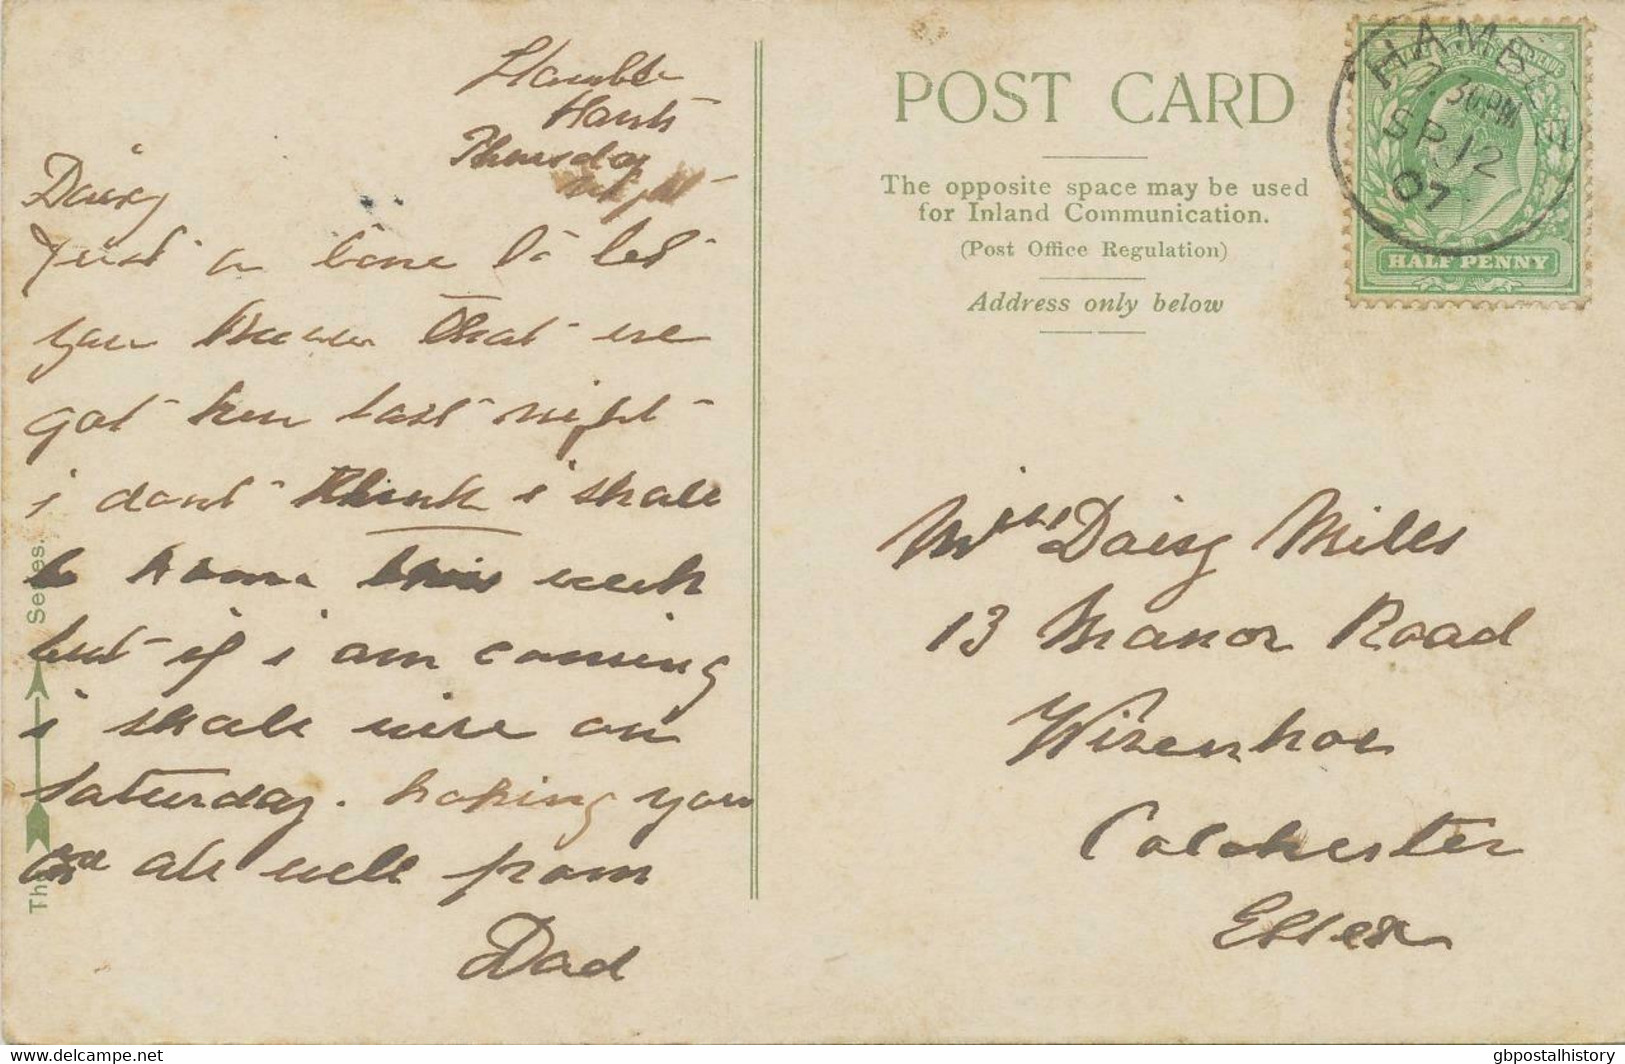 Hamble
Hants
Thursday
night
Daisy
Just a line to let
you know that we
got here last night
i dont think i shall
b home this week
but if i am coming
i shall wire on
Saturday. hoping you
are all well from
Dad
The
Series.
POST CARD
The opposite space may be used
for Inland Communication.
(Post Office Regulation)
Address only below
HAMBLE
7.30PM
SP 12
07
HALF PENNY
Miss Daisy Mills
13 Manor Road
Wivenhoe
Colchester
Essex
www.delcampe.net
gbpostalhistory